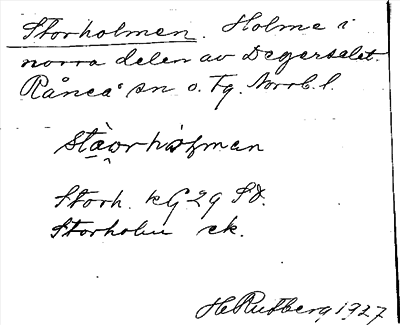 Storholmen. Holme i
norra delen av Degerselet.
Råneå sn o. Tg. Norrb. l.
Storh. kG 29 SO.
Storholm ek.
H Rutberg 1927